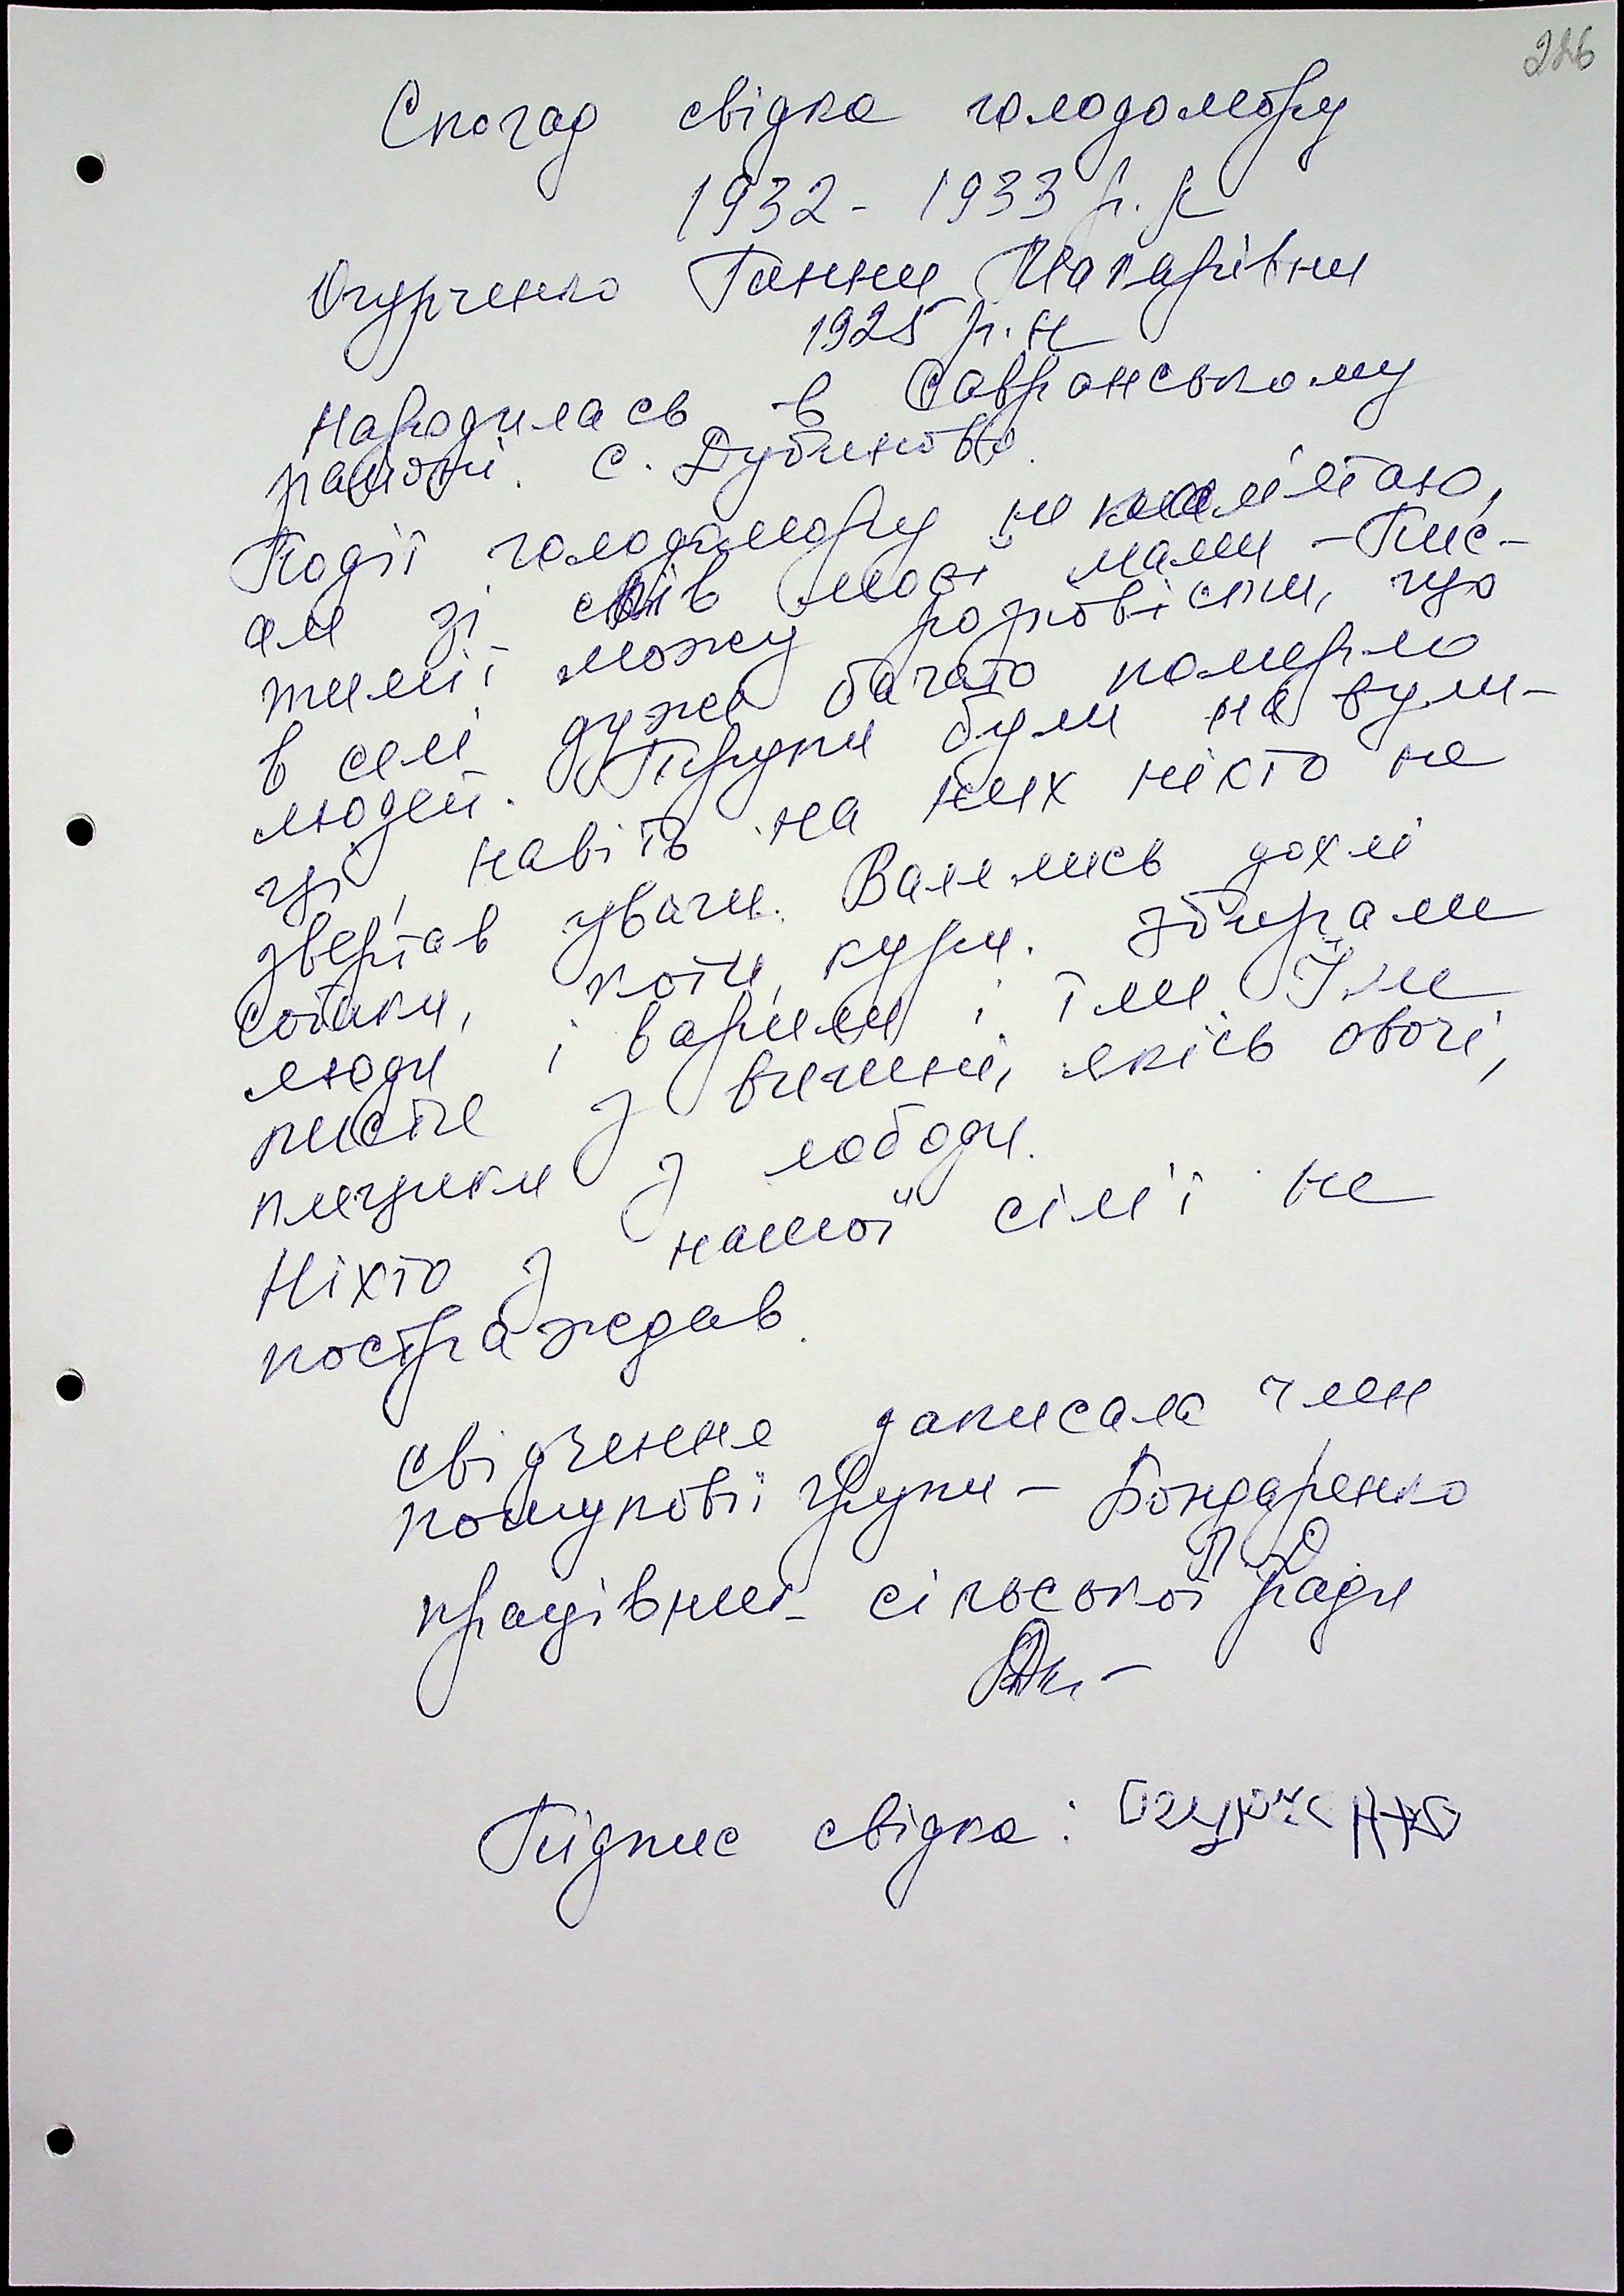 226
Спогад свідка голодомору
1932 - 1933 р.р
Огурченко Ганни Макарівни
1925 р.н
народилась в Савранському
районі. с. Дубиново.
Події голодомору не пам'ятаю,
ал зі слів моєї мами - Пис-
тимії можу розповісти, що
в селі дуже багато померло
людей. Трупи були на вули-
ці, навіть на них ніхто не
звертав уваги. Валялись дохлі
собаки, коти, кури. Збирали
люди і варили і їли. Їли
листя з вишні, якісь овочі,
плацики з лободи.
Ніхто з нашої сім'ї не
постраждав.
свідчення записала член
пошукової групи - Бондаренко
працівник сільської ради
Підпис свідка: